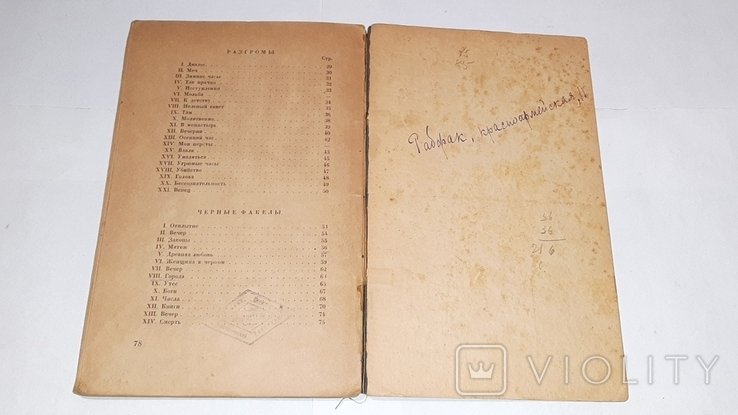 РАЗГРОМЫ
Стр.
I. Диалог 29
II. Меч 30
III. Зимние часы 31
IV. Так мрачно 32
V. Исступленно 33
VI. Мольба
VII. К детству 34
VIII. Нелепый завет 35
IX. Там 36
X. Молитвенно 38
XI. В монастырь 39
XII. Вечерня 40
XIII. Осенний час 42
XIV. Мои персты
XV. Вдали 43
XVI. Умалиться 45
XVII. Угрюмые часы 46
XVIII. Убийство 47
XIX. Голова 48
XX. Бессознательность 49
XXI. Венец 50
ЧЕРНЫЕ ФАКЕЛЫ
I. Отплытие 53
II. Вечер 54
III. Законы 55
IV. Мятеж 56
V. Древняя любовь 57
VI. Женщина в черном 59
VII. Вечер 62
VIII. Города 64
IX. Утес 65
X. Боги 67
XI. Числа 68
XII. Книги 70
XIII. Вечер 74
XIV. Смерть 75
78
Рабфак, красноармейская, 11
36
36
216
VIOLITY